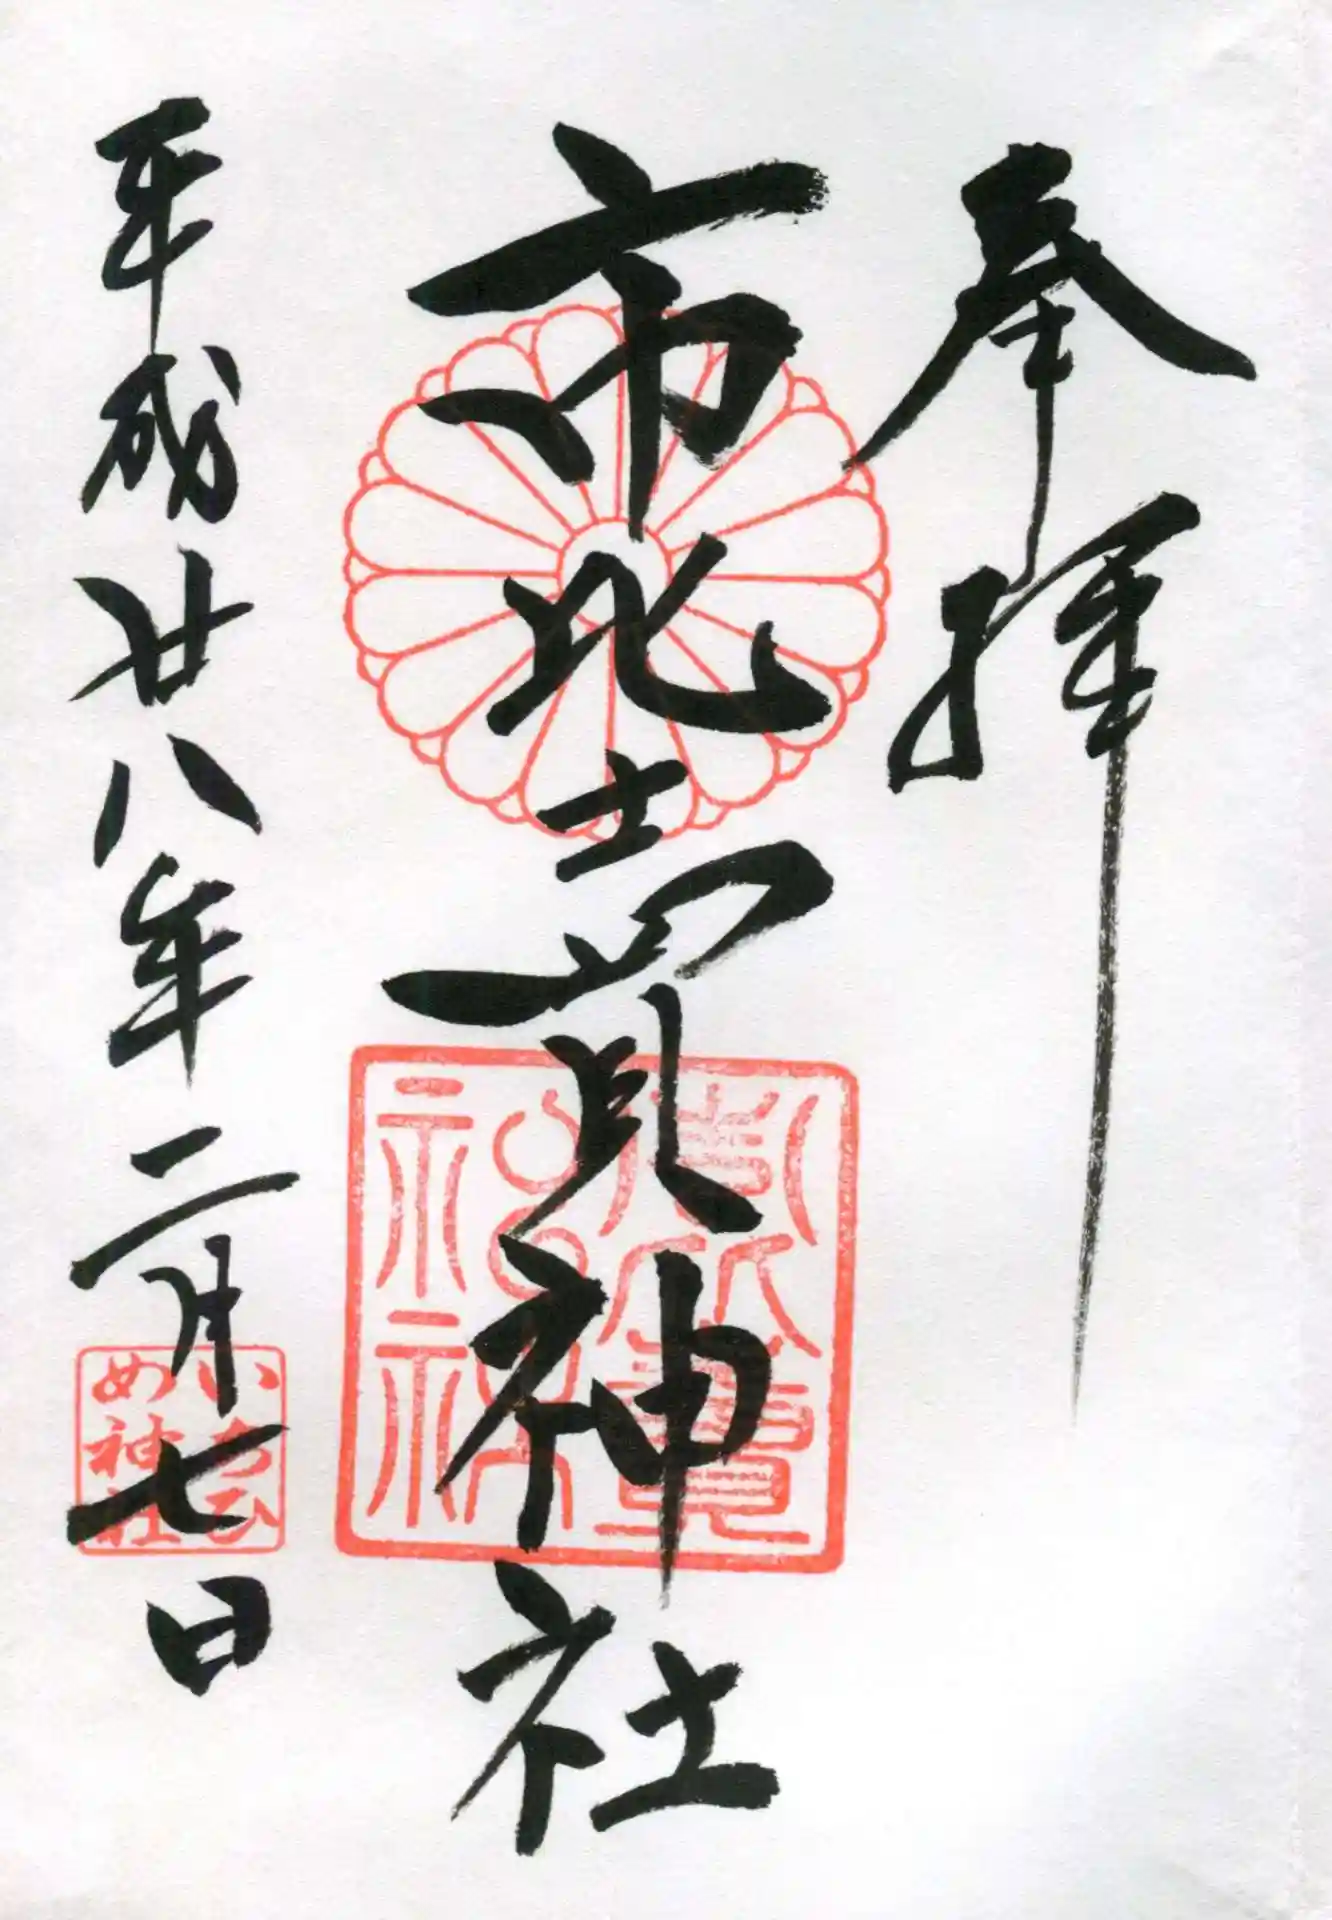 奉拝
市比賣神社
平成廿八年二月七日
いちひ
め神社